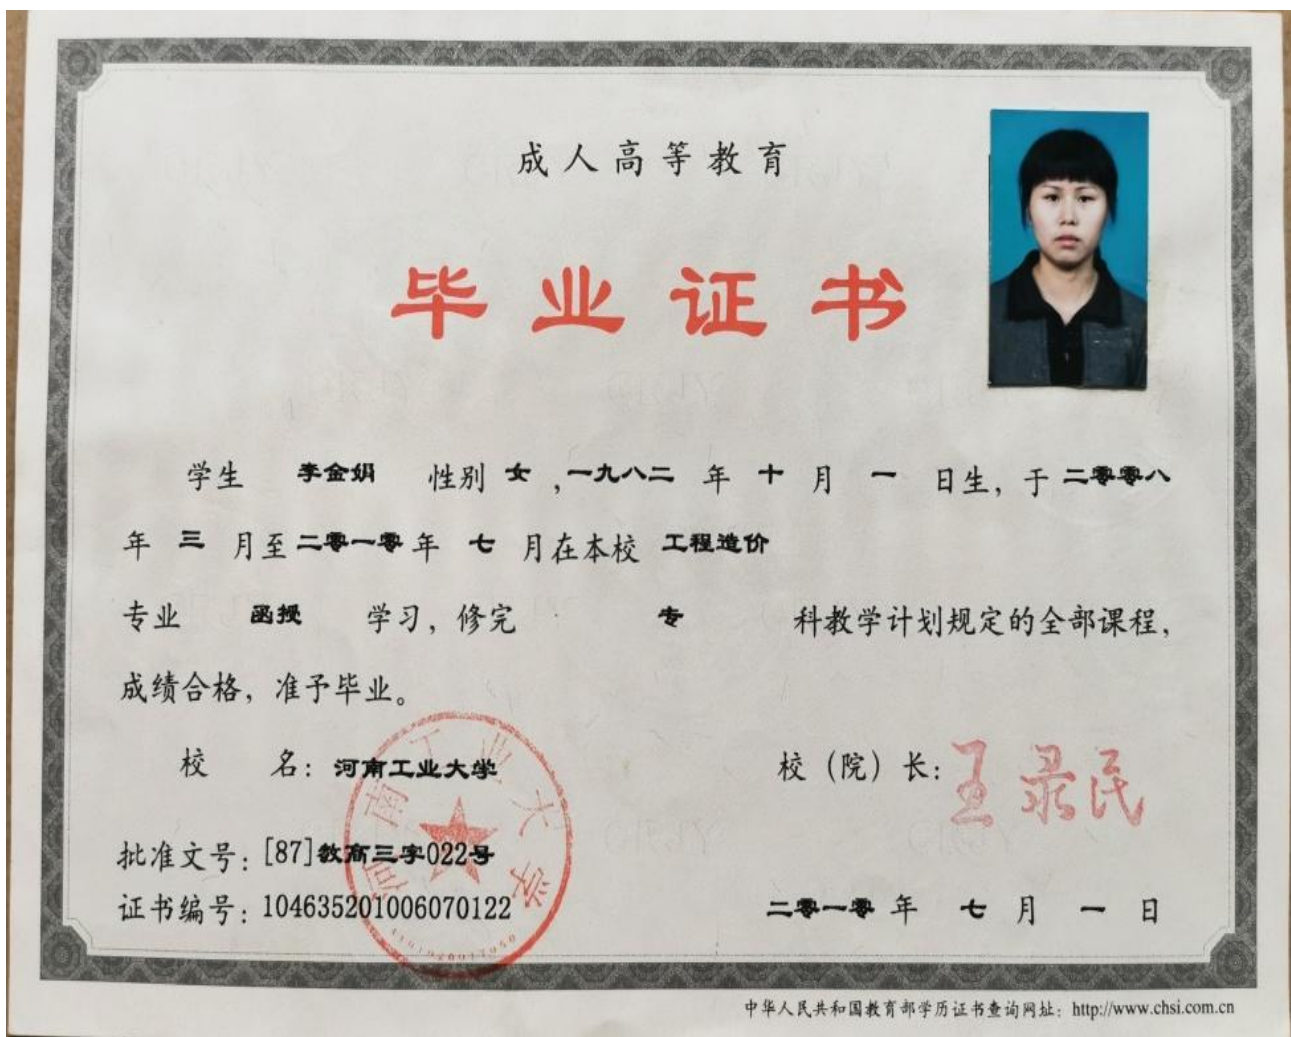 成人高等教育
毕业证书
学生 李金娟 性别 女,一九八二 年 十 月 一 日生,于 二零零八
年 三 月至 二零一零 年 七 月在本校 工程造价
专业 函授 学习,修完 专 科教学计划规定的全部课程,
成绩合格,准予毕业。
校 名:河南工业大学
校(院)长:王录民
河南工业大学
批准文号:[87]教高三字022号
证书编号:104635201006070122
二零一零 年 七 月 一 日
中华人民共和国教育部学历证书查询网址:http://www.chsi.com.cn